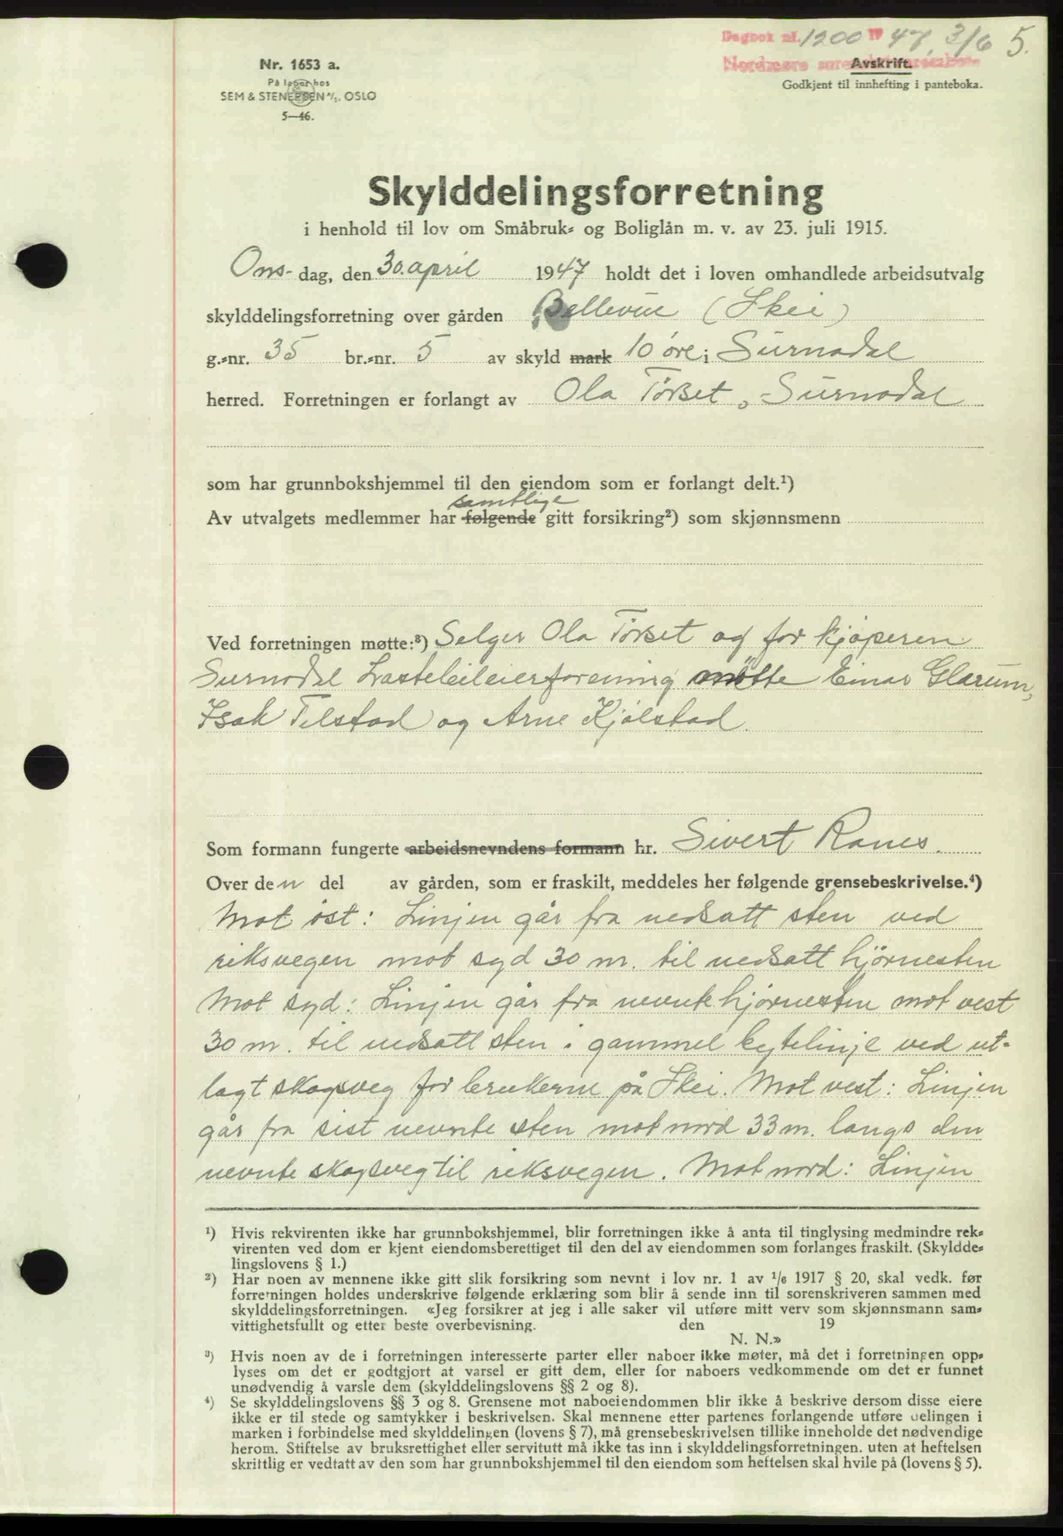 Dagbok nr. 1200 1947, 3/6 5.
Nordmøre sorenskriverembete
Nr. 1653 a.
Avskrift.
På lager hos
Godkjent til innhefting i panteboka.
SEM & STENERSEN A/S. OSLO
5—46.
Skylddelingsforretning
i henhold til lov om Småbruk- og Boliglån m. v. av 23. juli 1915.
Ons- dag, den 30. april 1947 holdt det i loven omhandlede arbeidsutvalg
skylddelingsforretning over gården Bellevue (Skei)
g.-nr. 35 br.-nr. 5 av skyld mark 10 øre i Surnadal
herred. Forretningen er forlangt av Ola Tørset, Surnadal
som har grunnbokshjemmel til den eiendom som er forlangt delt.¹)
samtlige
Av utvalgets medlemmer har følgende gitt forsikring²) som skjønnsmenn
Ved forretningen møtte:³) Selger Ola Tørset og for kjøperen
Surnadal Lastebileierforening møtte Einar Glærum,
Isak Telstad og Arne Kjølstad.
Som formann fungerte arbeidsnevndens formann hr. Sivert Ranes.
Over den del av gården, som er fraskilt, meddeles her følgende grensebeskrivelse.⁴)
Mot øst: Linjen går fra nedsatt sten ved
riksvegen mot syd 30 m. til nedsatt hjørnesten
Mot syd: Linjen går fra nevnte hjørnesten mot vest
30 m. til nedsatt sten i gammel bytelinje ved ut-
lagt skogsveg for brukerne på Skei. Mot vest: Linjen
går fra sist nevnte sten mot nord 33 m. langs den
nevnte skogsveg til riksvegen. Mot nord: Linjen
¹) Hvis rekvirenten ikke har grunnbokshjemmel, blir forretningen ikke å anta til tinglysing medmindre rek-
virenten ved dom er kjent eiendomsberettiget til den del av eiendommen som forlanges fraskilt. (Skyldde-
lingslovens § 1.)
²) Har noen av mennene ikke gitt slik forsikring som nevnt i lov nr. 1 av 1/6 1917 § 20, skal vedk. før
forretningen holdes underskrive følgende erklæring som blir å sende inn til sorenskriveren sammen med
skylddelingsforretningen. «Jeg forsikrer at jeg i alle saker vil utføre mitt verv som skjønnsmann sam-
vittighetsfullt og etter beste overbevisning. den 19
N. N.»
³) Hvis noen av de i forretningen interesserte parter eller naboer ikke møter, må det i forretningen opp-
lyses om det er godtgjort at varsel er gitt dem, eller for naboers vedkommende om det er funnet
unødvendig å varsle dem (skylddelingslovens §§ 2 og 8).
⁴) Se skylddelingslovens §§ 3 og 8. Grensene mot naboeiendommen blir ikke å beskrive dersom disse eiere
ikke er til stede og samtykker i beskrivelsen. Skal mennene etter partenes forlangende utføre delingen i
marken i forbindelse med skylddelingen (lovens § 7), må grensebeskrivelsen tillike inneholde det nødvendige
herom. Stiftelse av bruksrettighet eller servitutt må ikke tas inn i skylddelingsforretningen, uten at heftelsen
skriftlig er vedtatt av den som har grunnbokshjemmel til den eiendom som heftelsen skal hvile på (lovens § 5).